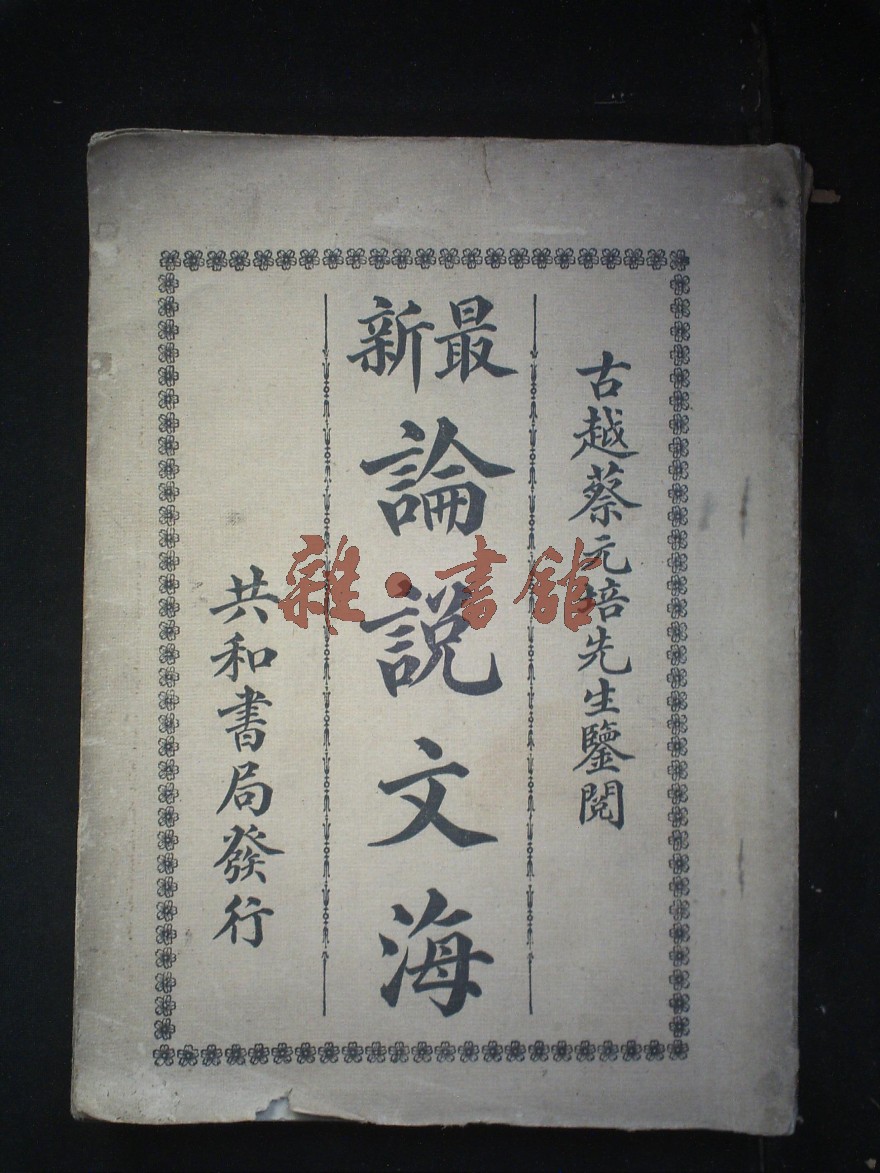 古越蔡元培先生鑒閱
最新
論說文海
共和書局發行
雜·書館